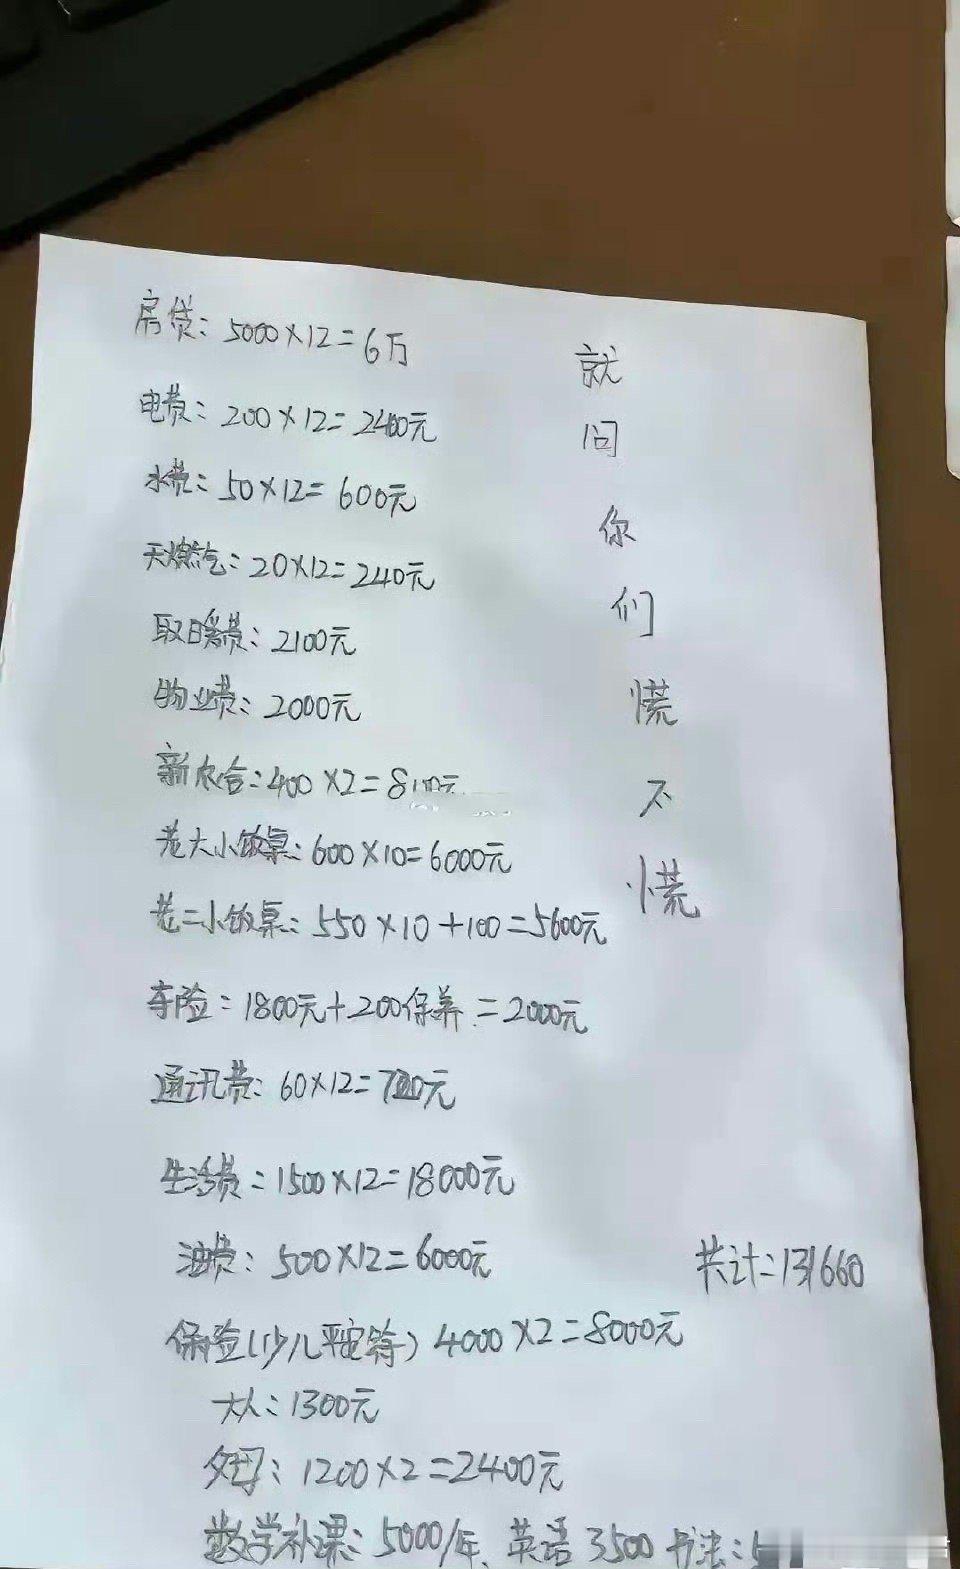 房贷：5000×12=6万
电费：200×12=2400元
水费：50×12=600元
天燃气：20×12=240元
取日暖费：2100元
物业费：2000元
新农合：400×2=800元
老大小饭桌：600×10=6000元
老二小饭桌：550×10+100=5600元
车险：1800元+200保养=2000元
通讯费：60×12=720元
生活费：1500×12=18000元
油费：500×12=6000元
保险(少儿平安等) 4000×2=8000元
大人：1300元
父母：1200×2=2400元
数学补课：5000/年、英语3500 书法：
就问你们慌不慌
共计：131660